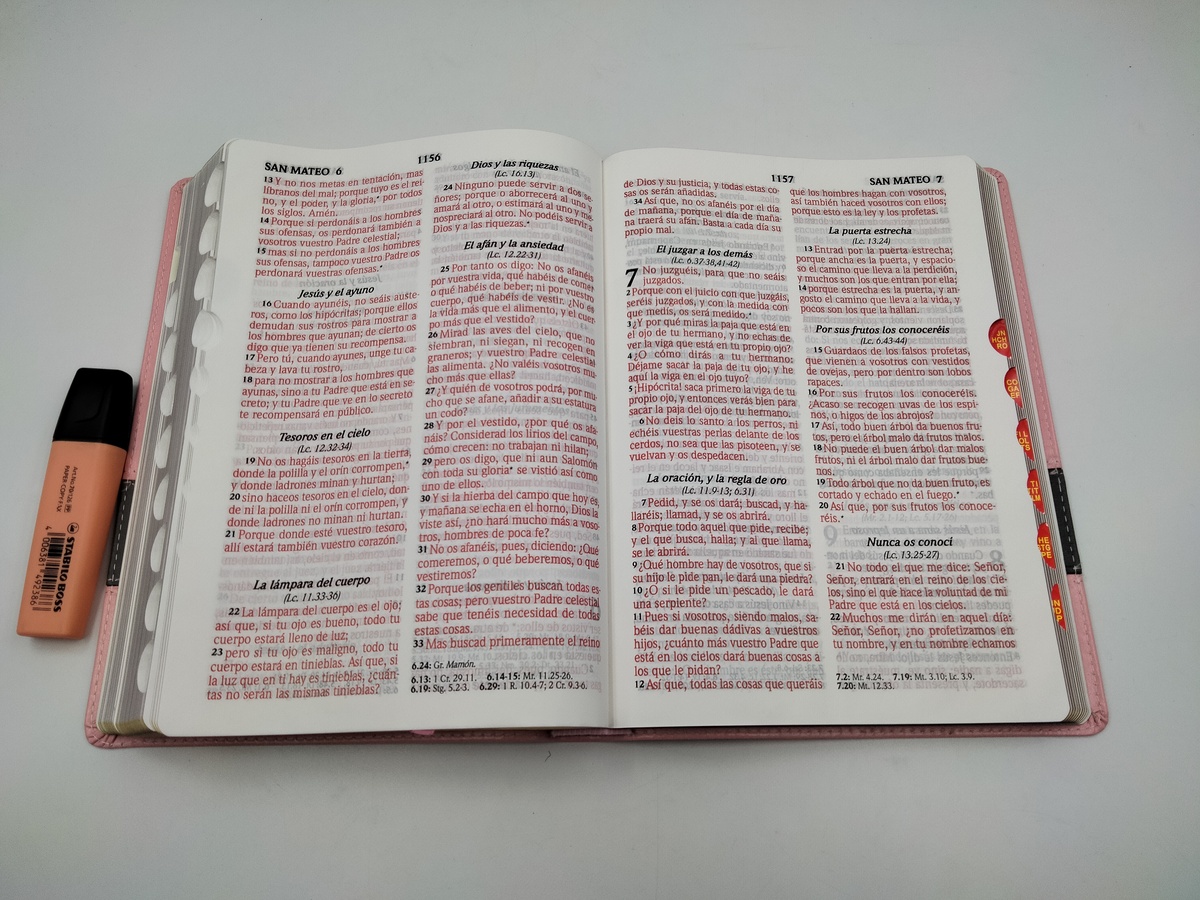 SAN MATEO 6
1156
13 Y no nos metas en tentación, mas
líbranos del mal; porque tuyo es el rei-
no, y el poder, y la gloria,* por todos
los siglos. Amén.
14 Porque si perdonáis a los hombres
sus ofensas, os perdonará también a
vosotros vuestro Padre celestial;
15 mas si no perdonáis a los hombres
sus ofensas, tampoco vuestro Padre os
perdonará vuestras ofensas.*
Jesús y el ayuno
16 Cuando ayunéis, no seáis auste-
ros, como los hipócritas; porque ellos
demudan sus rostros para mostrar a
los hombres que ayunan; de cierto os
digo que ya tienen su recompensa.
17 Pero tú, cuando ayunes, unge tu ca-
beza y lava tu rostro,
18 para no mostrar a los hombres que
ayunas, sino a tu Padre que está en se-
creto; y tu Padre que ve en lo secreto
te recompensará en público.
Tesoros en el cielo
(Lc. 12.32-34)
19 No os hagáis tesoros en la tierra,
donde la polilla y el orín corrompen,*
y donde ladrones minan y hurtan;
20 sino haceos tesoros en el cielo, don-
de ni la polilla ni el orín corrompen, y
donde ladrones no minan ni hurtan.
21 Porque donde esté vuestro tesoro,
allí estará también vuestro corazón.
La lámpara del cuerpo
(Lc. 11.33-36)
22 La lámpara del cuerpo es el ojo;
así que, si tu ojo es bueno, todo tu
cuerpo estará lleno de luz;
23 pero si tu ojo es maligno, todo tu
cuerpo estará en tinieblas. Así que, si
la luz que en ti hay es tinieblas, ¿cuán-
tas no serán las mismas tinieblas?
Dios y las riquezas
(Lc. 16.13)
24 Ninguno puede servir a dos se-
ñores; porque o aborrecerá al uno y
amará al otro, o estimará al uno y me-
nospreciará al otro. No podéis servir a
Dios y a las riquezas.*
El afán y la ansiedad
(Lc. 12.22-31)
25 Por tanto os digo: No os afanéis
por vuestra vida, qué habéis de comer
o qué habéis de beber; ni por vuestro
cuerpo, qué habéis de vestir. ¿No es
la vida más que el alimento, y el cuer-
po más que el vestido?
26 Mirad las aves del cielo, que no
siembran, ni siegan, ni recogen en
graneros; y vuestro Padre celestial
las alimenta. ¿No valéis vosotros mu-
cho más que ellas?
27 ¿Y quién de vosotros podrá, por mu-
cho que se afane, añadir a su estatura
un codo?
28 Y por el vestido, ¿por qué os afa-
náis? Considerad los lirios del campo,
cómo crecen: no trabajan ni hilan;
29 pero os digo, que ni aun Salomón
con toda su gloria* se vistió así como
uno de ellos.
30 Y si la hierba del campo que hoy es,
y mañana se echa en el horno, Dios la
viste así, ¿no hará mucho más a voso-
tros, hombres de poca fe?
31 No os afanéis, pues, diciendo: ¿Qué
comeremos, o qué beberemos, o qué
vestiremos?
32 Porque los gentiles buscan todas es-
tas cosas; pero vuestro Padre celestial
sabe que tenéis necesidad de todas
estas cosas.
33 Mas buscad primeramente el reino
6.24: Gr. Mamón.
6.13: 1 Cr. 29.11. 6.14-15: Mr. 11.25-26.
6.19: Stg. 5.2-3. 6.29: 1 R. 10.4-7; 2 Cr. 9.3-6.
1157
SAN MATEO 7
de Dios y su justicia; y todas estas co-
sas os serán añadidas.
34 Así que, no os afanéis por el día
de mañana, porque el día de maña-
na traerá su afán. Basta a cada día su
propio mal.
El juzgar a los demás
(Lc. 6.37-38,41-42)
7 No juzguéis, para que no seáis
juzgados.
2 Porque con el juicio con que juzgáis,
seréis juzgados, y con la medida con
que medís, os será medido.*
3 ¿Y por qué miras la paja que está en
el ojo de tu hermano, y no echas de
ver la viga que está en tu propio ojo?
4 ¿O cómo dirás a tu hermano:
Déjame sacar la paja de tu ojo, y he
aquí la viga en el ojo tuyo?
5 ¡Hipócrita! saca primero la viga de tu
propio ojo, y entonces verás bien para
sacar la paja del ojo de tu hermano.
6 No deis lo santo a los perros, ni
echéis vuestras perlas delante de los
cerdos, no sea que las pisoteen, y se
vuelvan y os despedacen.
La oración, y la regla de oro
(Lc. 11.9-13; 6.31)
7 Pedid, y se os dará; buscad, y ha-
llaréis; llamad, y se os abrirá.
8 Porque todo aquel que pide, recibe;
y el que busca, halla; y al que llama,
se le abrirá.
9 ¿Qué hombre hay de vosotros, que si
su hijo le pide pan, le dará una piedra?
10 ¿O si le pide un pescado, le dará
una serpiente?
11 Pues si vosotros, siendo malos, sa-
béis dar buenas dádivas a vuestros
hijos, ¿cuánto más vuestro Padre que
está en los cielos dará buenas cosas a
los que le pidan?
12 Así que, todas las cosas que queráis
que los hombres hagan con vosotros,
así también haced vosotros con ellos;
porque esto es la ley y los profetas.
La puerta estrecha
(Lc. 13.24)
13 Entrad por la puerta estrecha;
porque ancha es la puerta, y espacio-
so el camino que lleva a la perdición,
y muchos son los que entran por ella;
14 porque estrecha es la puerta, y an-
gosto el camino que lleva a la vida, y
pocos son los que la hallan.
Por sus frutos los conoceréis
(Lc. 6.43-44)
15 Guardaos de los falsos profetas,
que vienen a vosotros con vestidos
de ovejas, pero por dentro son lobos
rapaces.
16 Por sus frutos los conoceréis.
¿Acaso se recogen uvas de los espi-
nos, o higos de los abrojos?
17 Así, todo buen árbol da buenos fru-
tos, pero el árbol malo da frutos malos.
18 No puede el buen árbol dar malos
frutos, ni el árbol malo dar frutos bue-
nos.
19 Todo árbol que no da buen fruto, es
cortado y echado en el fuego.*
20 Así que, por sus frutos los conoce-
réis.*
Nunca os conocí
(Lc. 13.25-27)
21 No todo el que me dice: Señor,
Señor, entrará en el reino de los cie-
los, sino el que hace la voluntad de mi
Padre que está en los cielos.
22 Muchos me dirán en aquel día:
Señor, Señor, ¿no profetizamos en
tu nombre, y en tu nombre echamos
7.2: Mr. 4.24. 7.19: Mt. 3.10; Lc. 3.9.
7.20: Mt. 12.33.
JN
HCH
RO
CO
GA
EF
TI
TIT
LM
HE
STG
PE
STABILO BOSS
4 006381 492386